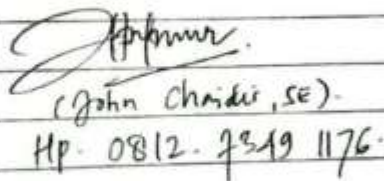 (John Chaidir, SE).
Hp. 0812. 7349 1176.